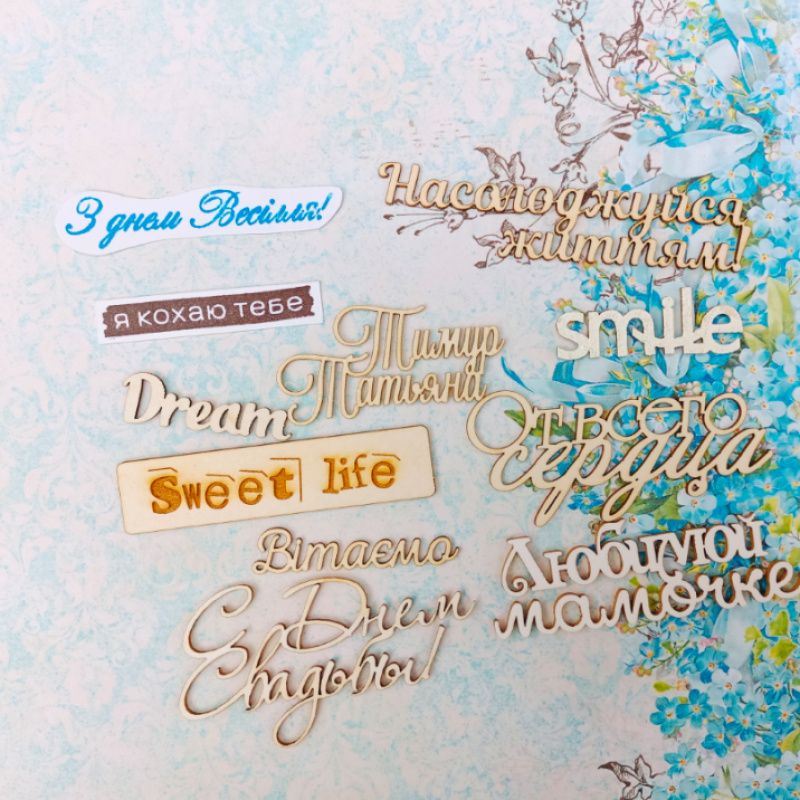 З днем Весілля!
Насолоджуйся
життям!
я кохаю тебе
smile
Тимур
Татьяна
Dream
От всего
сердца
Sweet life
Вітаємо
Любимой
мамочке
С Днем
Свадьбы!